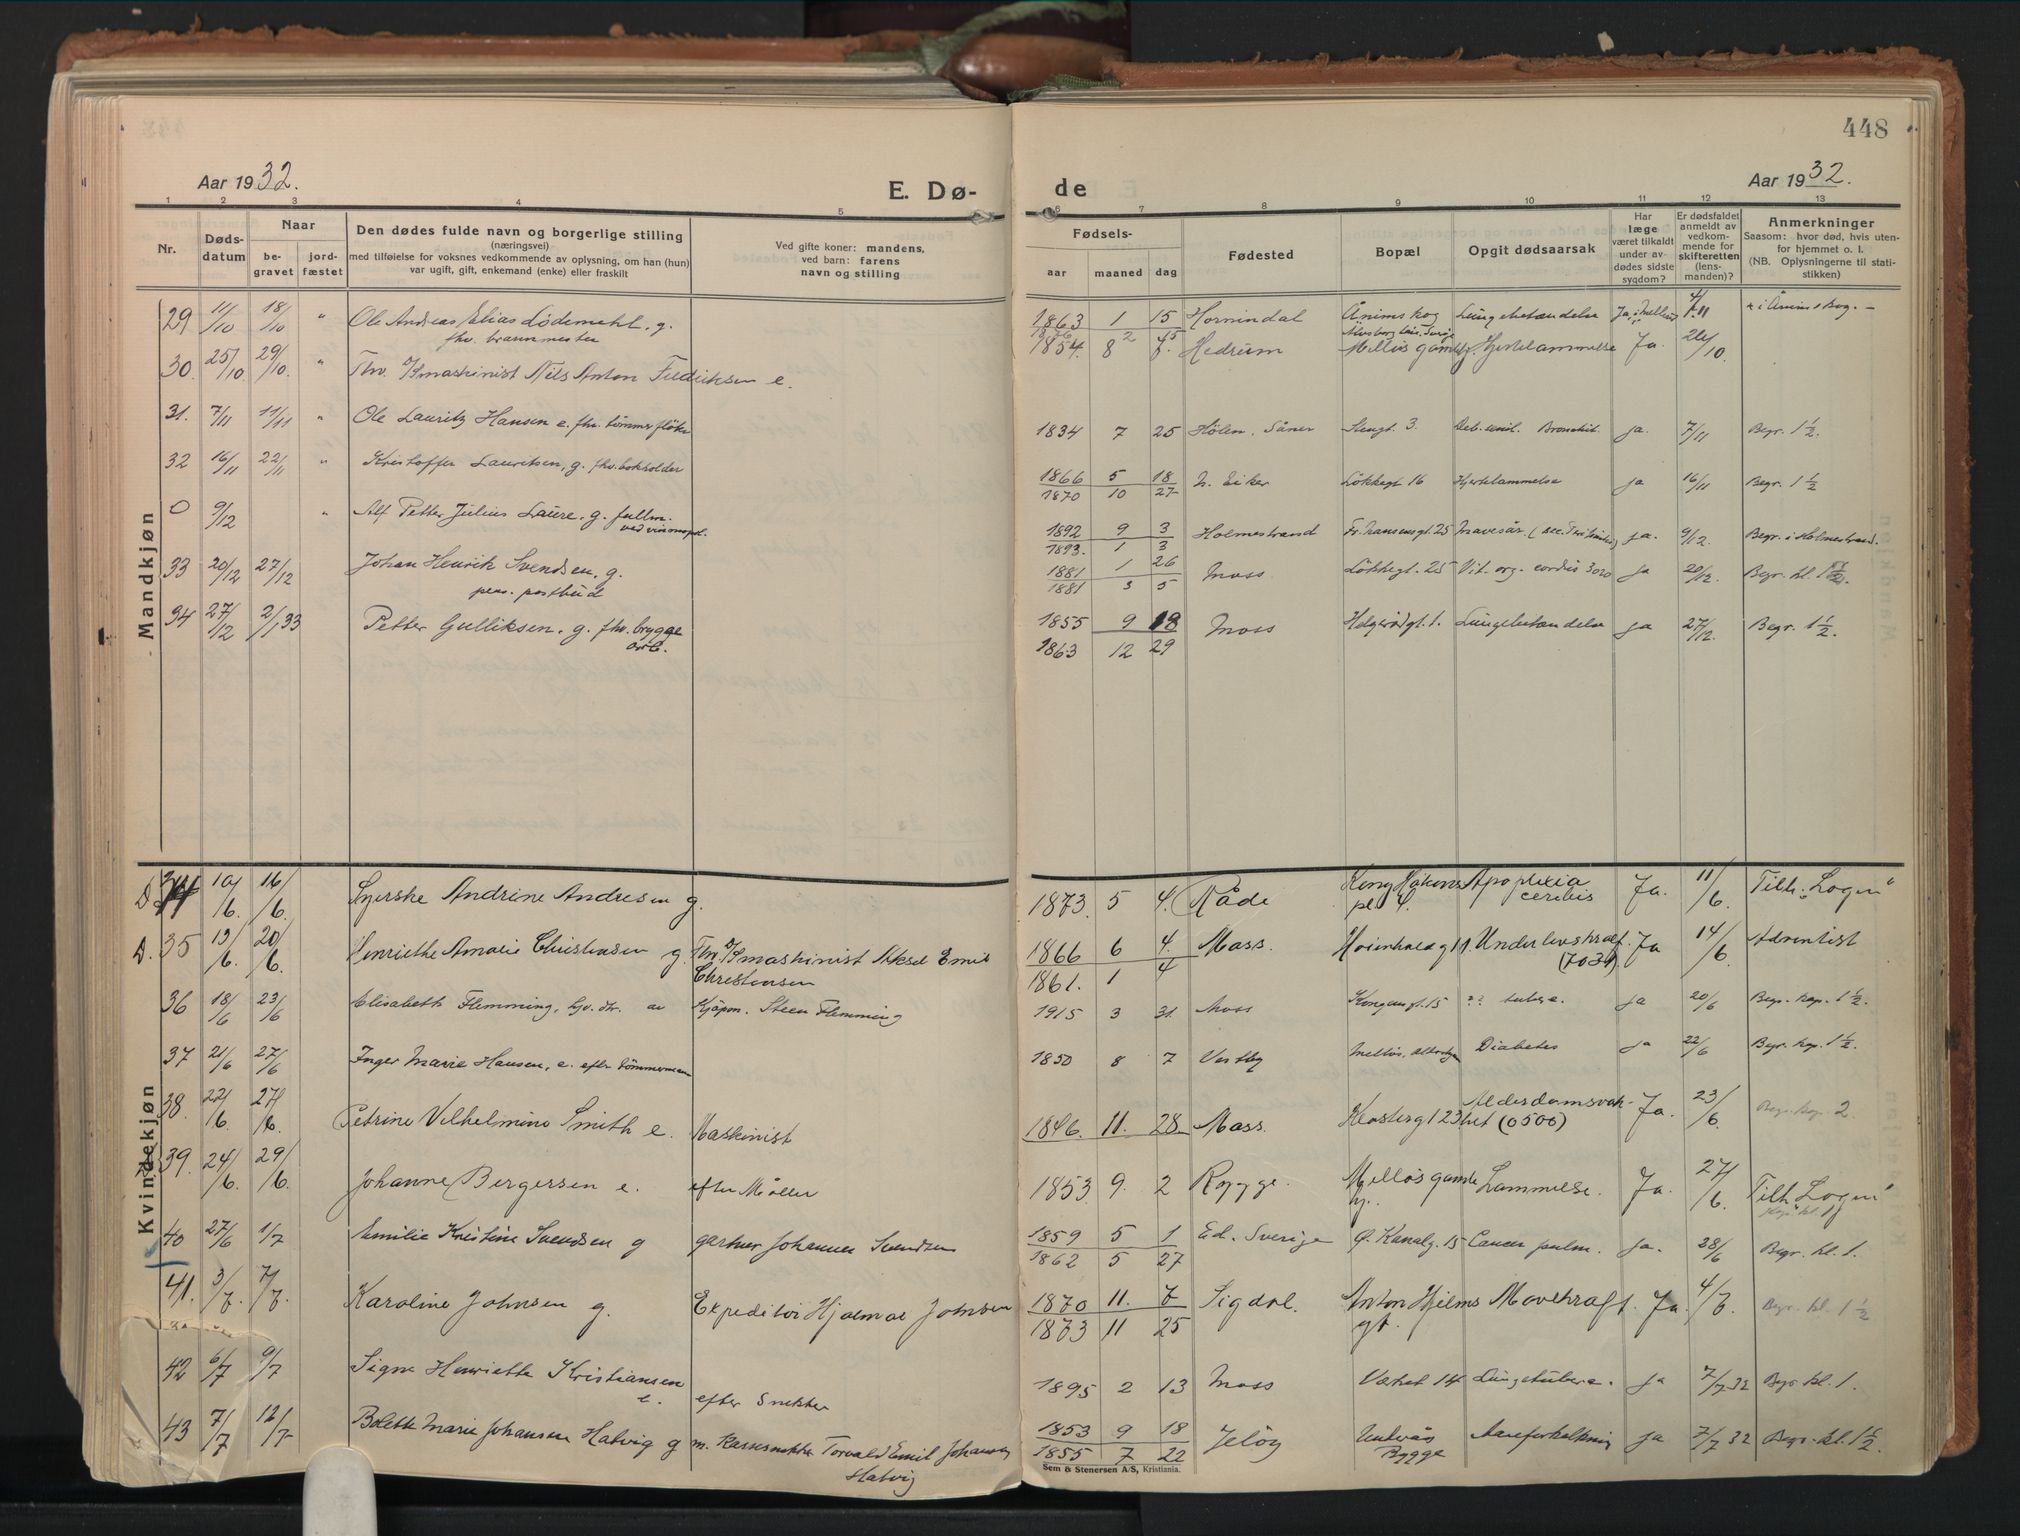 448
Aar 1932.
E. Dø-
de
Aar 1932.
1 2 3 4 5 6 7 8 9 10 11 12 13
Nr.
Døds-
datum
Naar
be-
gravet
jord-
fæstet
Den dødes fulde navn og borgerlige stilling
(næringsvei)
med tilføielse for voksnes vedkommende av oplysning, om han (hun)
var ugift, gift, enkemand (enke) eller fraskilt
Ved gifte koner: mandens,
ved barn: farens
navn og stilling
Fødsels-
aar maaned dag
Fødested
Bopæl
Opgit dødsaarsak
Har
læge
været tilkaldt
under av-
dødes sidste
sygdom?
Er dødsfaldet
anmeldt av
vedkom-
mende for
skifteretten
(lens-
manden)?
Anmerkninger
Saasom: hvor død, hvis uten-
for hjemmet o. l.
(NB. Oplysningerne til stati-
stikken)
Mandkjøn
29 11/10 18/10 " Ole Andreas Elias Lødemehl, g.
fhv. brannmester
1863 1 15 Hornindal Ånimskog Lungebetændelse
30. 25/10 29/10. " Fhv. maskinist Nils Anton Fredriksen e.
1854. 8 Hedrum Melløs gamleh. Hjertelammelse Ja. 26/10.
31. 7/11 11/11 " Ole Lauritz Hansen e. fhv. tømmerfløter
1834 7 25 Hølen, Såner Stengt. 3. Deb. senil. Bronchit. ja. 7/11 Begr. 1 1/2.
32 16/11 22/11 " Kristoffer Lauritsen, g. fhv. bokholder
1866 5 18 N. Eiker Løkkegt 16 Hjertelammelse ja 16/11 Begr. 1 1/2
1870 10 27
0 9/12 " Alf Petter Julius Laure, g. fullm.
ved vinmopol.
1892 9 3 Holmestrand Fr. Nansensgt. 25 Mavesår ja. 9/12. Begr. i Holmestrand.
1893. 1 3
33 20/12 27/12 Johan Henrik Svendsen, g.
pens. postbud
1881 1 26 Moss Løkkegt. 25 Vit. org. cordis 3020 ja 20/12. Begr. kl. 1 1/2.
1881 3 5
34 27/12 2/1 33 Petter Gulliksen, g. fhv. brygge
arb.
1855 9 18 Moss Helgerødgt. 1. Lungebetændelse ja 27/12. Begr. 1 1/2.
1863 12 29
Kvindekjøn
D. 34 10/6. 16/6. Syerske Andrine Andresen g.
1873. 5 4. Råde Kong Håkons Apoplexia Ja. 11/6. Tilh. "Logen"
pl. 4. ceribis
D. 35 13/6. 20/6. Henriette Amalie Christensen g. Fhv. maskinist Aksel Emil
Christensen
1866 6 4. Moss. Underlivskræft. Ja 14/6. Adventist
1861. 1 4
36 18/6 23/6 Elisabeth Flemming, hjv. dtr. av Kjøpm. Steen Flemming
1915 3 31. Moss Kongensgt. 15 ja 20/6 Begr. kap. 1 1/2.
37 21/6 27/6 Inger Marie Hansen, e. efter tømmermann
1850 8 7 Vestby Diabetes ja 22/6 Begr. kap. 1 1/2.
38. 22/6. 27/6. Petrine Vilhelmine Smith e. Maskinist
1846. 11. 28. Moss. Klostergt 23 Alderdomsvak-
het (0500) Ja. 23/6. 2
39. 24/6. 29/6. Johanne Bergersen e. efter Møller
1853. 9. 2 Rygge. Melløs gamle Lammelse. Ja. 27/6. Tilh. "Logen"
h.
40 27/6 1/7 Emilie Kristine Svendsen g gartner Johannes Svendsen
1859 5 1 Ed. Sverige Ø. Kanalg. 15 Cancer pulm. ja. 28/6 Begr. kl. 1.
1862 5 27
41. 3/7. 7/7. Karoline Johnsen g. Expeditør Hjalmar Johnsen
1870 11. 7 Sigdal. Anton Hjelms Mavekræft. Ja. 4/7. Begr. kl. 1 1/2
1873 11 25 gt.
42 6/7 9/7 Signe Henriette Kristiansen
e. efter Snekker
1895 2 13 Moss Værket 14 Lungetuberc. ja 7/7 32 Begr. kl. 1.
43 7/7 12/7 Bolette Marie Johansen Hatvig g m. Torvald Emil Johansen
Hatvig
1853 9 18 Jeløy Aareforkalkning ja 7/7 32 Begr. kl. 1 1/2.
1855 7 22 Bygge
Sem & Stenersen A/S, Kristiania.